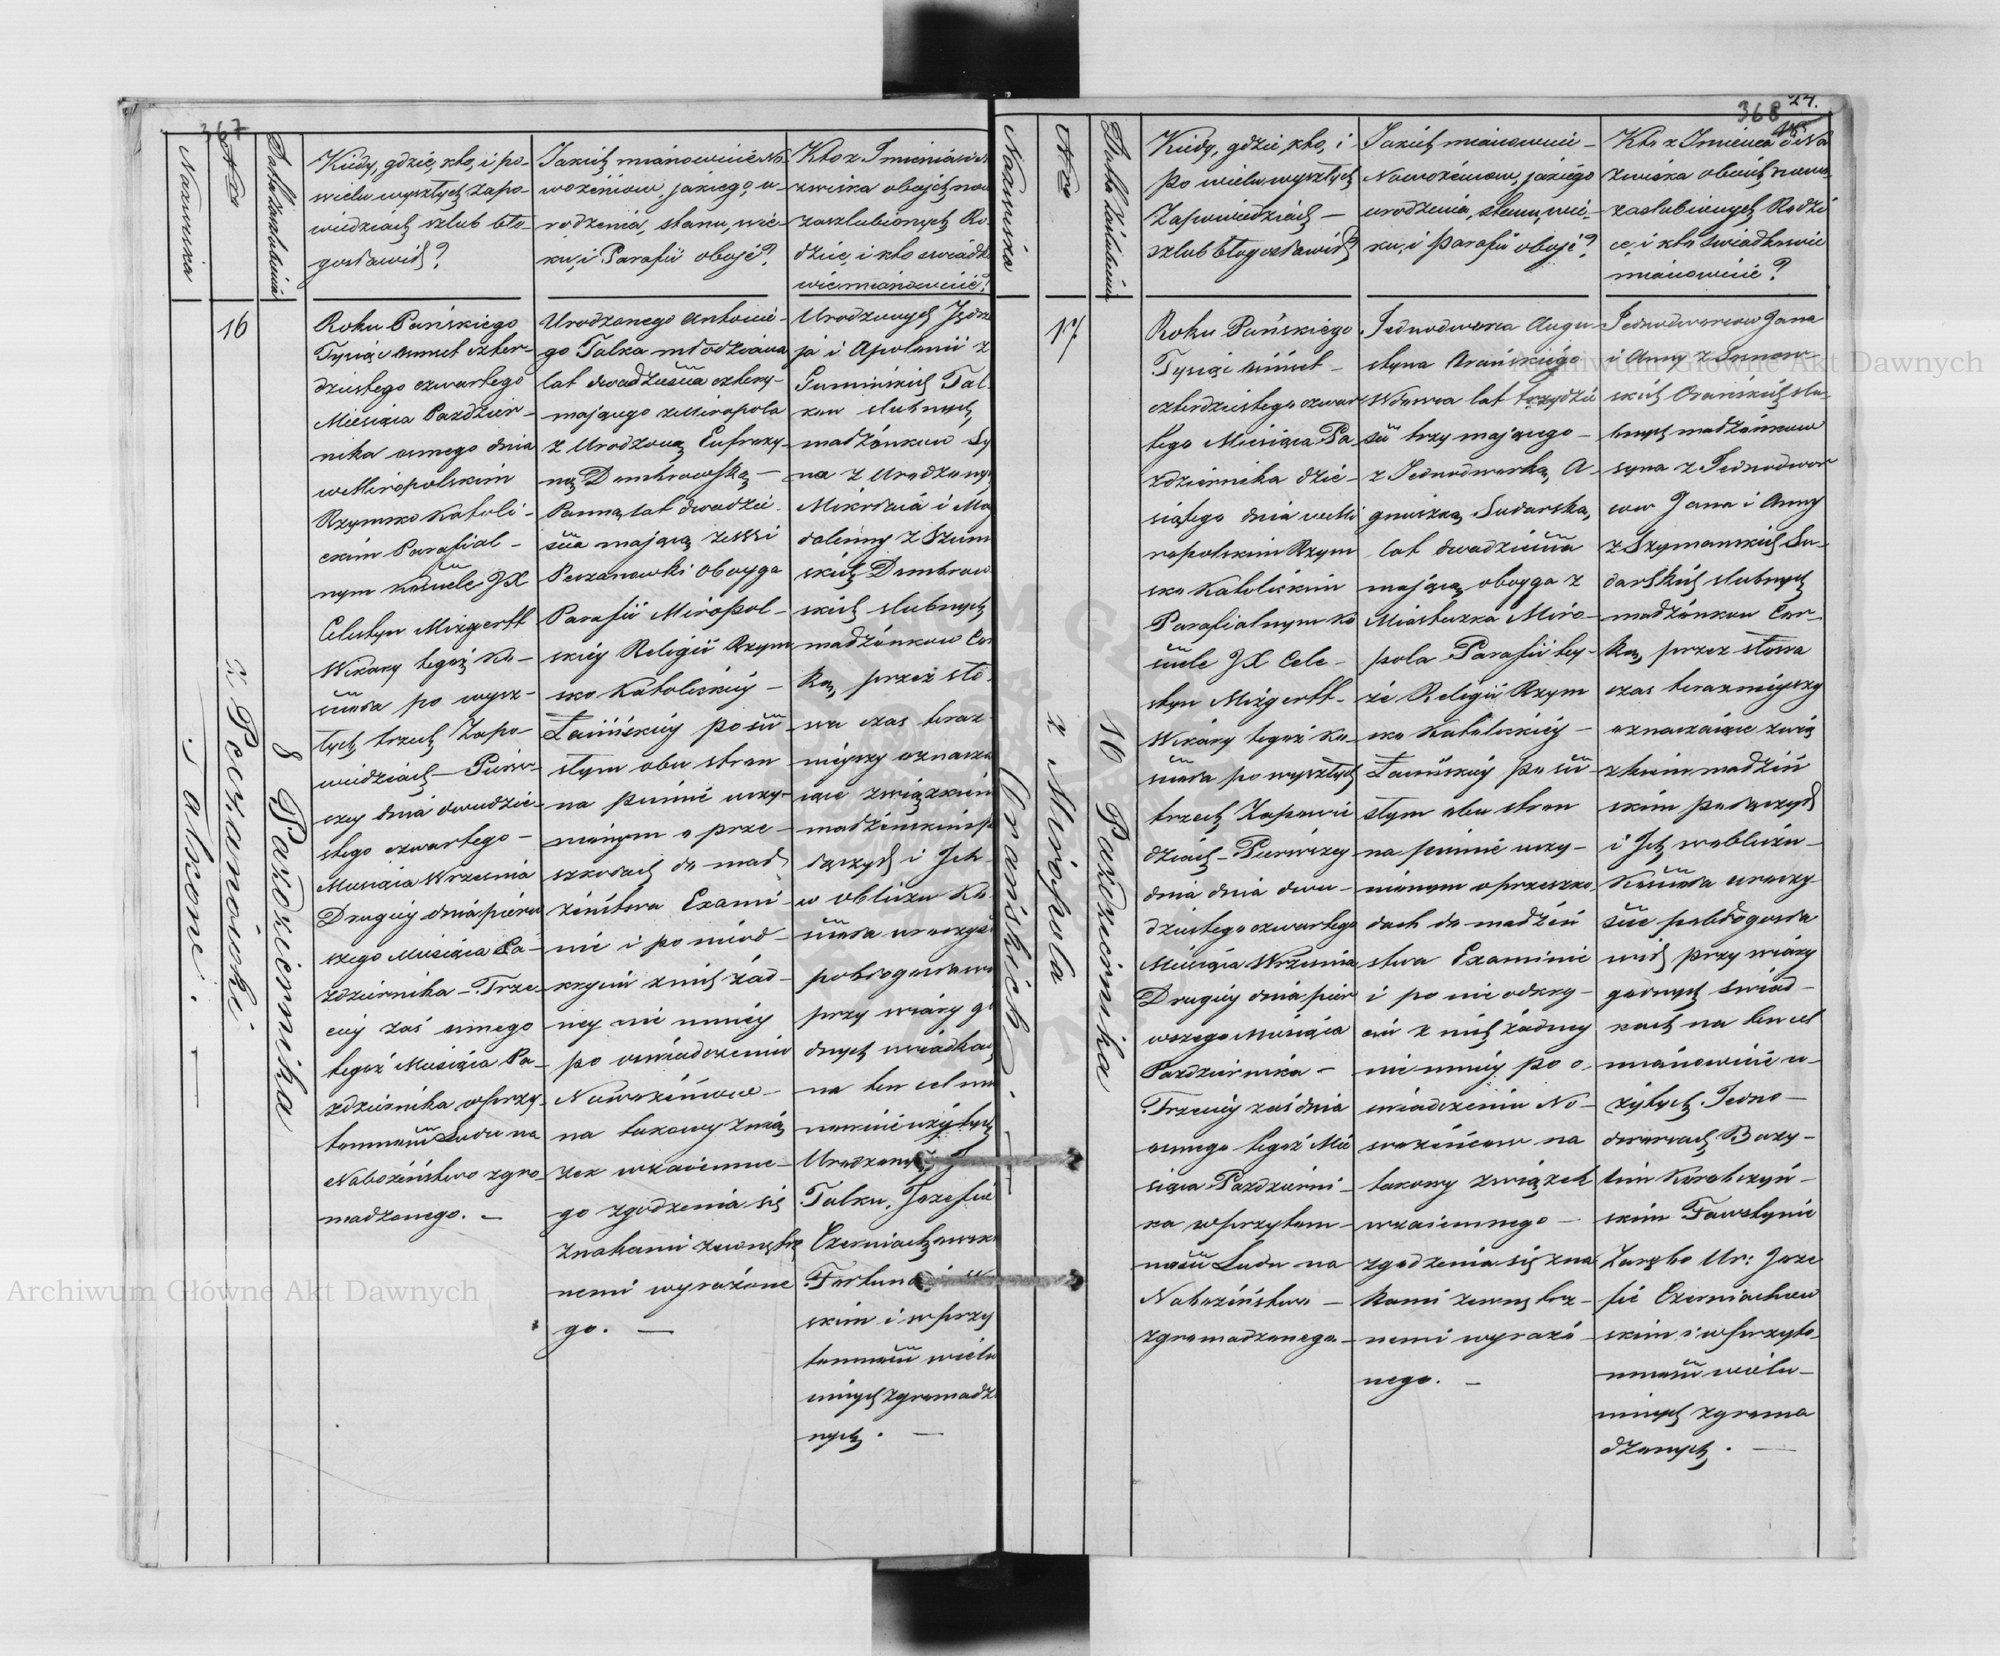 367
Nazwiska
Nro
Data zaslubienia
Kiedy, gdzie, kto, i po
wielu wyszłych zapo-
wiedziach szlub bło-
gosławił?
Jakich mianowicie No
wożeńcow, jakiego u-
rodzenia, stanu, wie-
ku, i Parafii oboje?
Kto z Imienia i
zwiska obojch now
zaszlubionych Ro
dzice, i kto swiadk
wie mianowicie?
Talkone.
16
z Peczanowki
8 Pazdziernika
Roku Pańskiego
Tysiąc osmset czter-
dziestego czwartego
Miesiąca Pazdzier-
nika osmego dnia
w Miropolskim
Rzymsko Katoli-
ckim Parafial-
nym Kościele JX
Celestyn Mizgerth
Wikary tegoż Ko-
ścioła po wysz-
łych trzech Zapo-
wiedziach - Pierw-
szey dnia dwudzie-
stego czwartego -
Miesiąca Wrzesnia
Drugiey dnia pierw
szego Miesiąca Pa-
zdziernika - Trze-
ciey zaś osmego
tegoż Miesiąca Pa-
zdziernika w przy-
tomności Ludu na
Nabożeństwo zgro
madzonego. -
Urodzonego Antonie-
go Talka młodziana
lat dwadzieścia cztery-
mającego z Miropola
z Urodzoną Eufrozy-
ną Dombrowską -
Panną lat dwadzie-
ścia mającą z wsi
Peczanowki oboyga
Parafii Miropol-
skiey Religii Rzym
sko Katolickiey -
Łaińskiey po ści-
słym obu stron
na piśmie uczy-
nionym o prze-
szkodach do mał
żeństwa Exami-
nie i po nieod-
kryciu z nich żad-
ney nie mniey
po oswiadczeniu
Nowożeńcow -
na takowy zwią
zek wzaiemne-
go zgodzenia się
znakami zewnętrz
nemi wyrażone
go. -
Urodzonych Jędrze
ja i Apolonii z
Sumińskich Tal-
kow slubnych
madżonkow Sy
na z Urodzony
Mikołaia i Mag
daleny z Szum
skich Dombrow
skich slubnych
madżonkow Cor
ką, przez sło-
wa czas teraz-
nieyszy oznacza
iące związkiem
madżenskim p
łączył i Ich -
w obliczu Ko-
ścioła uroczyś
pobłogosławi
przy wiary go
dnych swiadkach
na ten cel mia
nowicie użytych
Talku, Jozefie
Czerniachowsk
skim i w przy
tomności wielu
innych zgromadzo
nych. -
368
24.
Nazwiska
Nro
Data zaslubienia
Kiedy, gdzie, kto, i
po wielu wyszłych
Zapowiedziach -
szlub błogosławił?
Jakich mianowicie -
Nowożeńcow, jakiego
urodzenia, stanu, wie-
ku, i Parafii oboje?
Kto z Imienia i Na
zwiska oboich nowo-
zaslubionych Rodzi
ce i kto swiadkowie
mianowicie?
Orańskich.
17
z Miropola
10 Pazdziernika
Roku Pańskiego
Tysiąc osmset -
czterdziestego czwar
tego Miesiąca Pa-
zdziernika dzie-
siątego dnia w Mi
ropolskim Rzym
sko Katolickim
Parafialnym Ko
ściele JX Cele-
styn Mizgerth-
Wikary tegoż Ko-
ścioła po wyszłych
trzech Zapowie
dziach - Pierwszey
dnia dnia dwu-
dziestego czwartego
Miesiąca Wrzesnia
Drugiey dnia pier
wszego Miesiąca
Pazdziernika -
Trzeciey zaś dnia
osmego tegoż Mie
siąca Pazdzierni-
ka w przytom-
ności Ludu na
Nabożeństwo -
zgromadzonego -
Jednodworca Augu-
styna Orańskiego
Wdowca lat trzydzie
ści trzy mającego -
z Jednodworką A-
gnieszką Sudarską,
lat dwadzieścia
mającą oboyga z
Miasteczka Miro-
pola Parafii tey-
że Religii Rzym
sko Katolickiey -
Łaińskiey po ści-
słym obu stron
na piśmie uczy-
nionym o przeszko
dach do madżeń
stwa Examinie
i po nieodkry-
ciu z nich żadney
nie mniey po o-
swiadczeniu No-
wożeńcow na
takowy związek
wzaiemnego -
zgodzenia się zna
kami zewnętrz-
nemi wyrażo-
nego. -
Jednodworcow Jana
i Anny z Sosnow-
skich Orańskich slu-
bnych madżonkow
syna z Jednodwor
cow Jana i Anny
z Szymanskich Su-
darskich slubnych
madżonkow Cor-
ką, przez słowa
czas teraznieyszy
oznaczaiące zwią
zkiem madżeń
skim połączył
i Ich w obliczu -
Kościoła uroczy-
ście pobłogosła
wił przy wiary
godnych swiad-
kach na ten cel
mianowicie u-
żytych Jedno-
dworcach Bazy-
lim Korobczyń-
skim Fawstynie
Zarębo Ur: Joze
fie Czerniachow
skim i w przyto-
mności wielu-
innych zgroma
dzonych. -
Archiwum Główne Akt Dawnych
Archiwum Główne Akt Dawnych